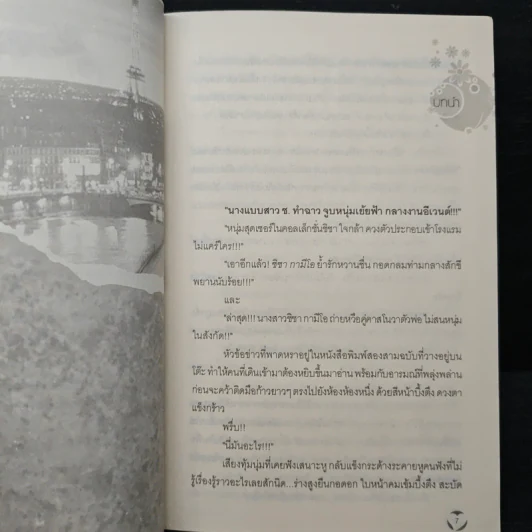 บทนำ
"นางแบบสาว ซ. ทำฉาว จูบหนุ่มเย้ยฟ้า กลางงานอีเวนต์!!!"
"หนุ่มสุดเซอร์ในคอลเล็กชั่นซิชา ใจกล้า ควงตัวประกอบเข้าโรงแรม
ไม่แคร์ใคร!!!"
"เอาอีกแล้ว! ซิชา กามีโอ ย้ำรักหวานชื่น กอดกลมท่ามกลางสักขี
พยานนับร้อย!!!"
และ
"ล่าสุด!!! นางสาวซิชา กามีโอ ถ่ายหวือคู่คาสโนวาตัวพ่อ ไม่สนหนุ่ม
ในสังกัด!!"
หัวข้อข่าวที่พาดหราอยู่ในหนังสือพิมพ์สองสามฉบับที่วางอยู่บน
โต๊ะ ทำให้คนที่เดินเข้ามาต้องหยิบขึ้นมาอ่าน พร้อมกับอารมณ์ที่พลุ่งพล่าน
ก่อนจะคว้าติดมือก้าวยาวๆ ตรงไปยังห้องห้องหนึ่ง ด้วยสีหน้าบึ้งตึง ดวงตา
แข็งกร้าว
พรึ่บ!!
"นี่มันอะไร!!!"
เสียงทุ้มนุ่มที่เคยฟังเสนาะหู กลับแข็งกระด้างระคายหูคนฟังที่ไม่
รู้เรื่องรู้ราวอะไรเลยสักนิด...ร่างสูงยืนกอดอก ใบหน้าคมเข้มบึ้งตึง สะบัด